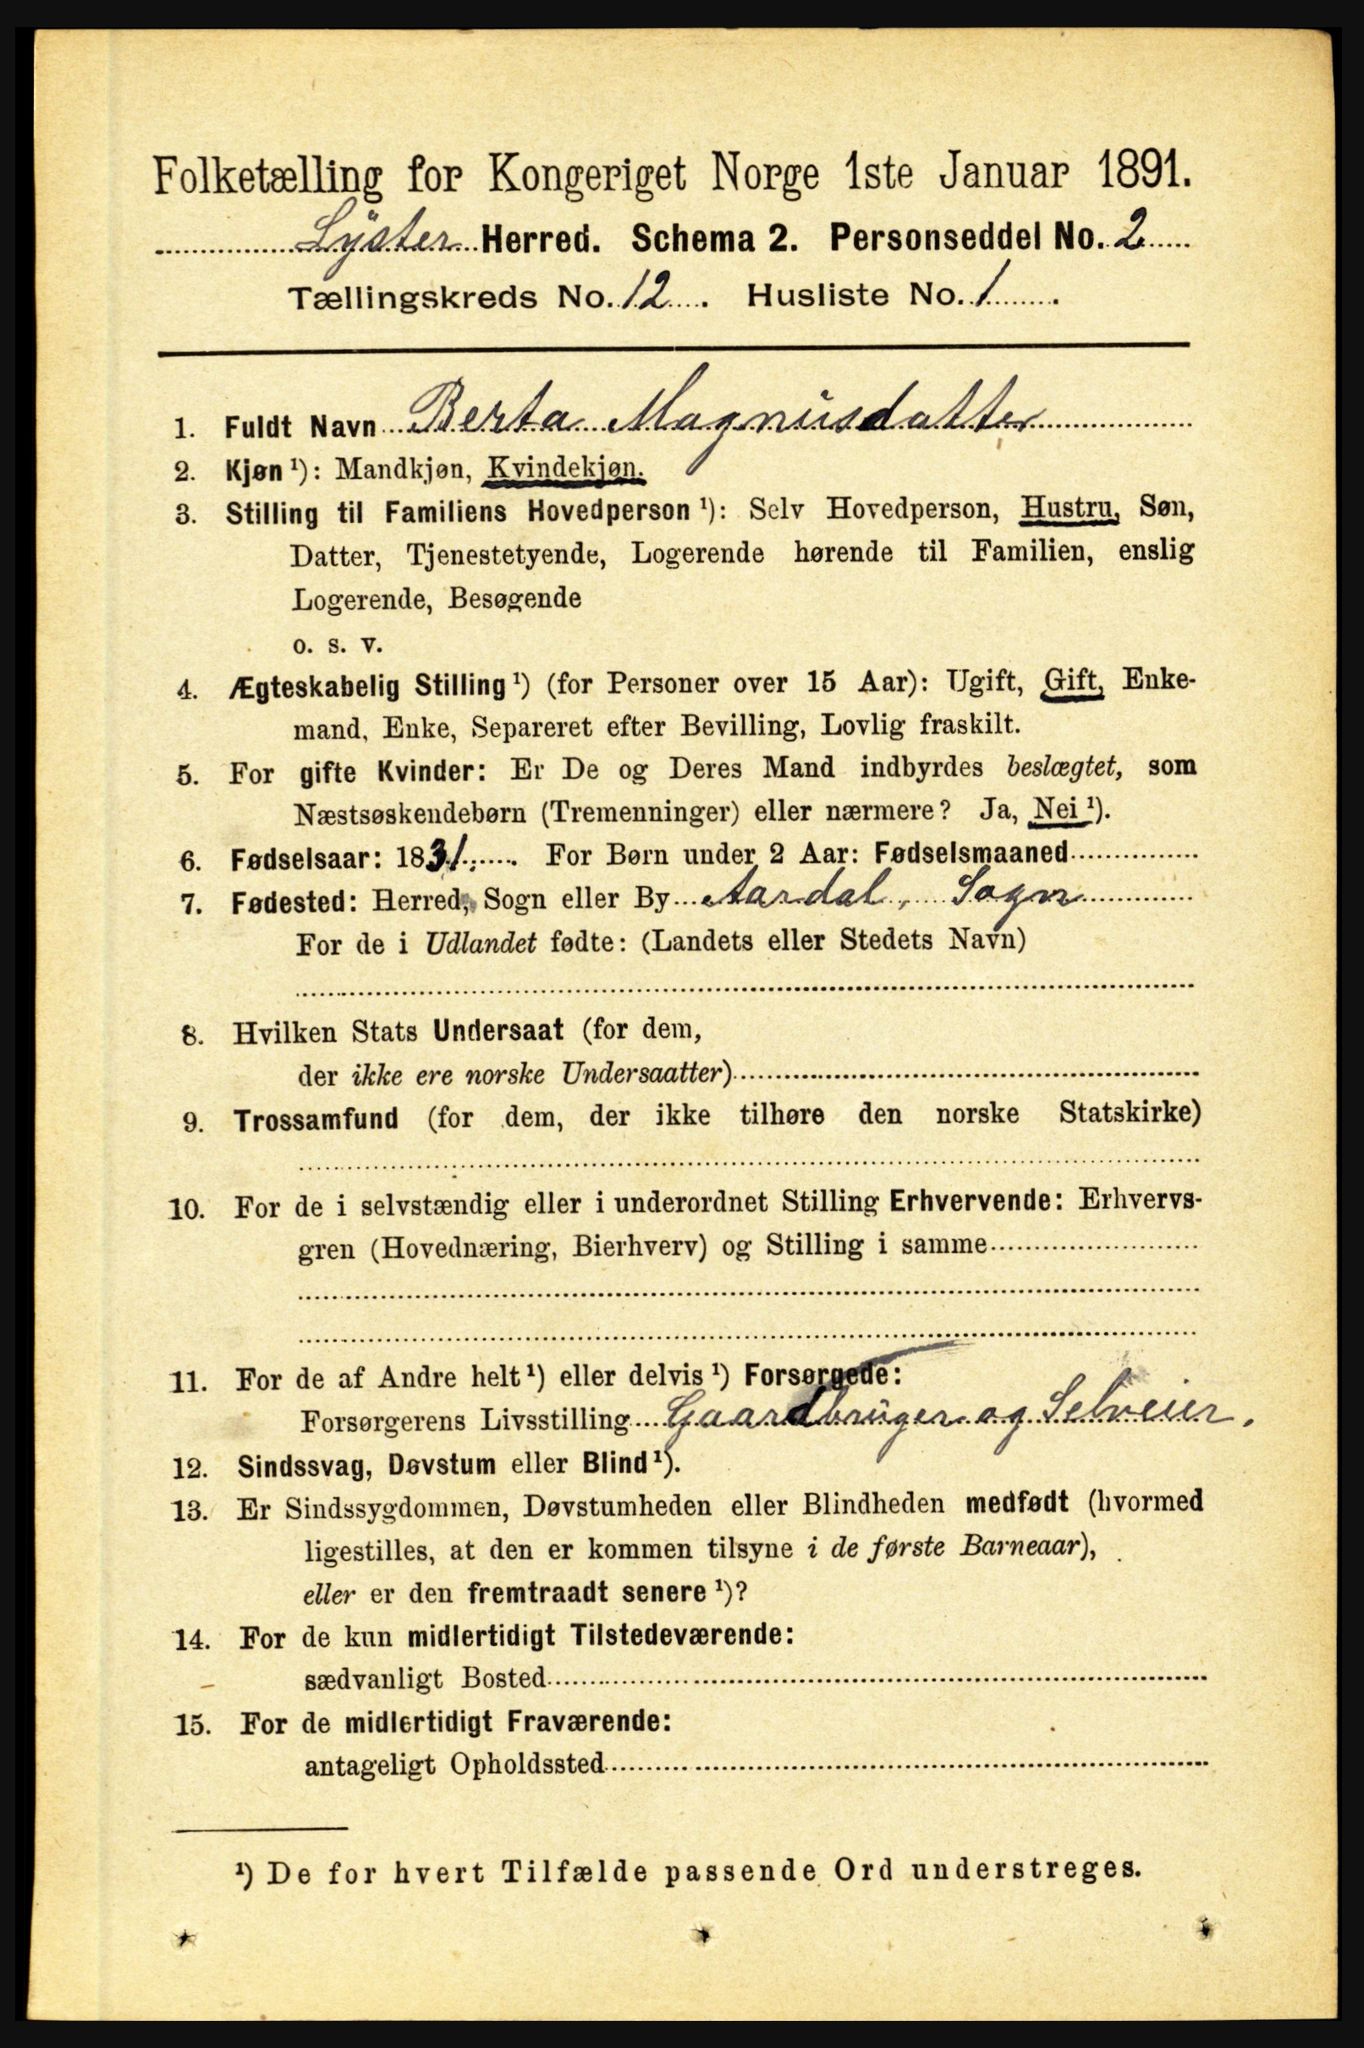 Folketælling for Kongeriget Norge 1ste Januar 1891.
Lyster Herred. Schema 2. Personseddel No. 2
Tællingskreds No. 12. Husliste No. 1.
1. Fuldt Navn Berta Magnusdatter
2. Kjøn ¹): Mandkjøn, Kvindekjøn.
3. Stilling til Familiens Hovedperson ¹): Selv Hovedperson, Hustru, Søn,
Datter, Tjenestetyende, Logerende hørende til Familien, enslig
Logerende, Besøgende
o. s. v.
4. Ægteskabelig Stilling ¹) (for Personer over 15 Aar): Ugift, Gift, Enke-
mand, Enke, Separeret efter Bevilling, Lovlig fraskilt.
5. For gifte Kvinder: Er De og Deres Mand indbyrdes beslægtet, som
Næstsøskendebørn (Tremenninger) eller nærmere? Ja, Nei ¹).
6. Fødselsaar: 1831. For Børn under 2 Aar: Fødselsmaaned
7. Fødested: Herred, Sogn eller By Aardal, Sogn
For de i Udlandet fødte: (Landets eller Stedets Navn)
8. Hvilken Stats Undersaat (for dem,
der ikke ere norske Undersaatter)
9. Trossamfund (for dem, der ikke tilhøre den norske Statskirke)
10. For de i selvstændig eller i underordnet Stilling Erhvervende: Erhvervs-
gren (Hovednæring, Bierhverv) og Stilling i samme
11. For de af Andre helt ¹) eller delvis ¹) Forsørgede:
Forsørgerens Livsstilling Gaardbruger og Selveier.
12. Sindssvag, Døvstum eller Blind ¹).
13. Er Sindssygdommen, Døvstumheden eller Blindheden medfødt (hvormed
ligestilles, at den er kommen tilsyne i de første Barneaar),
eller er den fremtraadt senere ¹)?
14. For de kun midlertidigt Tilstedeværende:
sædvanligt Bosted
15. For de midlertidigt Fraværende:
antageligt Opholdssted
¹) De for hvert Tilfælde passende Ord understreges.